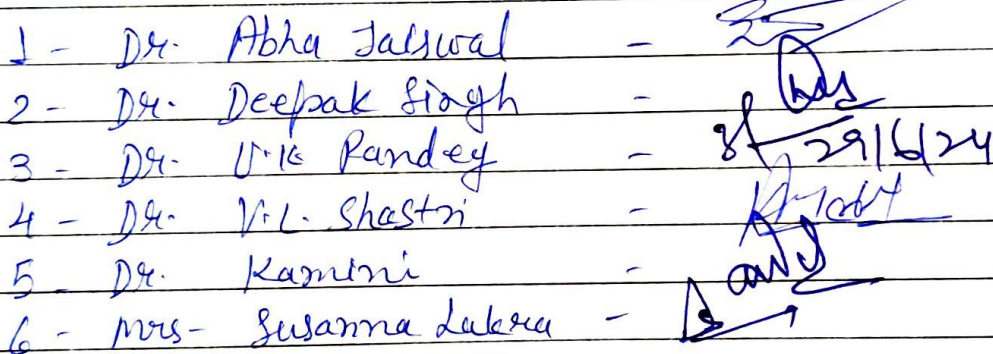 1 - Dr. Abha Jaiswal -
2 - Dr. Deepak Singh -
3 - Dr. V.K Pandey - 29/6/24
4 - Dr. V.L. Shastri -
5 - Dr. Kamini -
6 - Mrs - Susanna Lakra -